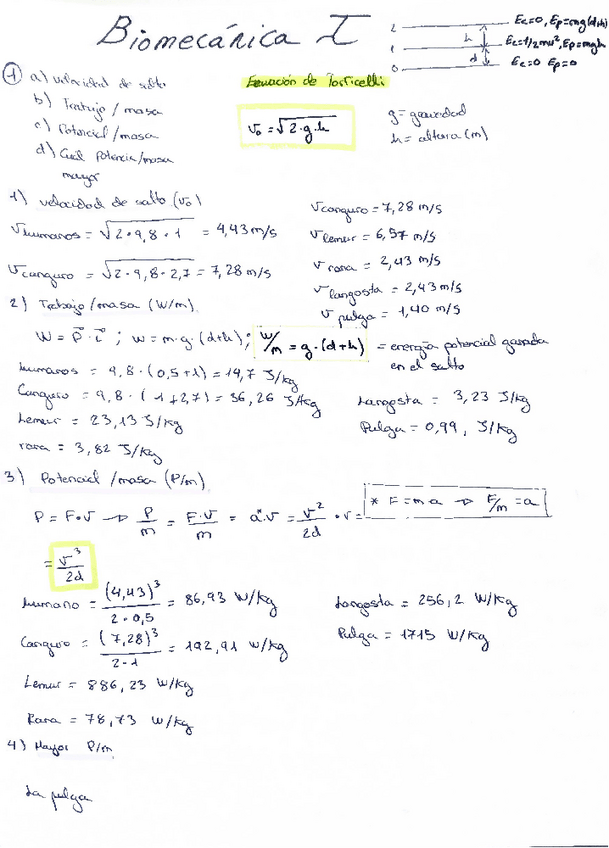 Biomecánica I
2 Ec=0, Ep=mg(d+h)
h
1 Ec=1/2mv², Ep=mgh
d
0 Ec=0 Ep=0
1 a) velocidad de salto
b) Trabajo/masa
c) Potencial/masa
d) Cual Potencia/masa
mayor
Ecuación de Torricelli
v₀ = √2·g·h
g = gravedad
h = altura (m)
1) velocidad de salto (v₀)
v humanos = √2·9,8·1 = 4,43 m/s
v canguro = √2·9,8·2,7 = 7,28 m/s
v canguro = 7,28 m/s
v lemur = 6,57 m/s
v rana = 2,43 m/s
v langosta = 2,43 m/s
v pulga = 1,40 m/s
2) Trabajo/masa (W/m)
W = P⃗ · ; W = m·g·(d+h); W/m = g·(d+h) = energía potencial ganada
en el salto
humanos = 9,8·(0,5+1) = 14,7 J/kg
Canguro = 9,8·(1+2,7) = 36,26 J/kg
Lemur = 23,13 J/kg
rana = 3,82 J/kg
Langosta = 3,23 J/kg
Pulga = 0,99, J/kg
3) Potencial/masa (P/m)
P = F·v → P/m = F·v/m = a*·v = v²/2d · v =
* F = m a → F/m = a
= v³/2d
humano = (4,43)³/2·0,5 = 86,93 W/kg
Canguro = (7,28)³/2·1 = 192,91 W/kg
Lemur = 886,23 W/kg
Rana = 78,73 W/kg
Langosta = 256,2 W/kg
Pulga = 1715 W/kg
4) Mayor P/m
La pulga